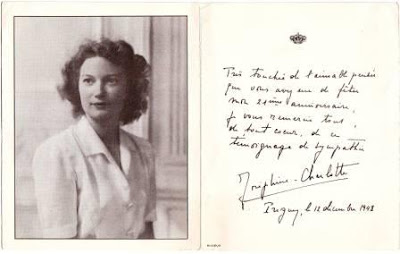 Très touchée de l'aimable pensée
que vous avez eue de fêter
mon 21ème anniversaire,
je vous remercie tout
de tout coeur, de ce
témoignage de sympathie
Joséphine-Charlotte
le 12 décembre 1948